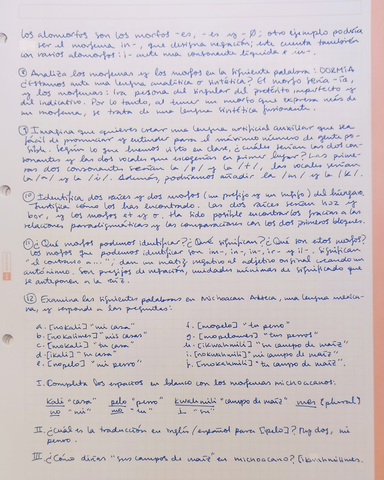 los alomorfos son los morfos -es, -s y -Ø; otro ejemplo podría
ser el morfema in-, que designa negación; este cuenta también
con varios alomorfos: i- ante una consonante líquida e in-.
⑧ Analiza los morfemas y los morfos en la siguiente palabra: DORMÍA
¿Estamos ante una lengua analítica o sintética? El morfo sería -ía,
y los morfemas: 1ra persona del singular del pretérito imperfecto y
del indicativo. Por lo tanto, al tener un morfo que expresa más de
un morfema, se trata de una lengua sintética fusionante.
⑨ Imagina que quieres crear una lengua artificial auxiliar que sea
fácil de pronunciar y entender para el máximo número de gente po-
sible. Según lo que hemos visto en clase, ¿cuáles serían las dos con-
sonantes y las dos vocales que escogerías en primer lugar? Las prime-
ras dos consonantes serían la /p/ y la /t/, las vocales serían
la /a/ y la /i/. Además, podríamos añadir la /m/ y la /k/.
⑩ Identifica dos raíces y dos morfos (un prefijo y un sufijo) del húngaro.
Justifica cómo los has encontrado. Las dos raíces serían hoz y
bor, y los morfos et y o. Ha sido posible encontrarlos gracias a las
relaciones paradigmáticas y las comparaciones con los dos primeros bloques.
⑪ ¿Qué morfos podemos identificar? ¿Qué significan? ¿Qué son estos morfos?
Los morfos que podemos identificar son im-, in-, ir- y il-. Significan
"el contrario a...", dan un matiz negativo al adjetivo original creando un
antónimo. Son prefijos de negación, unidades mínimas de significado que
se anteponen a la raíz.
⑫ Examina las siguientes palabras en Michoacan Azteca, una lengua mexica-
na, y responde a las preguntas:
a. [nokali] "mi casa" f. [mopelo] "tu perro"
b. [nokalimes] "mis casas" g. [mopelomes] "tus perros"
c. [mokali] "tu casa" h. [ikwahmili] "su campo de maíz"
d. [ikali] "su casa" i. [nokwahmili] "mi campo de maíz".
e. [nopelo] "mi perro" j. [mokwahmili] "tu campo de maíz".
I. Completa los espacios en blanco con los morfemas michoacanos:
kali "casa" pelo "perro" kwahmili "campo de maíz" mes (plural)
no "mi" mo "tu" i- "su"
II. ¿Cuál es la traducción en inglés/español para [pelo]? My dog, mi
perro.
III. ¿Cómo dirías "sus campos de maíz" en michoacano? [ikwahmilimes.